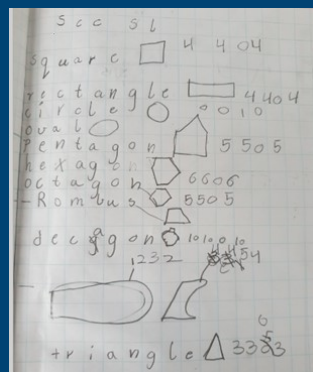 scc sl
square 4 404
rectangle 4404
circle 0010
oval
Pentagon 5505
hexagon 6606
octagon 5505
Rombus
decagon 10 10 0 10
1232 454
triangle 3333